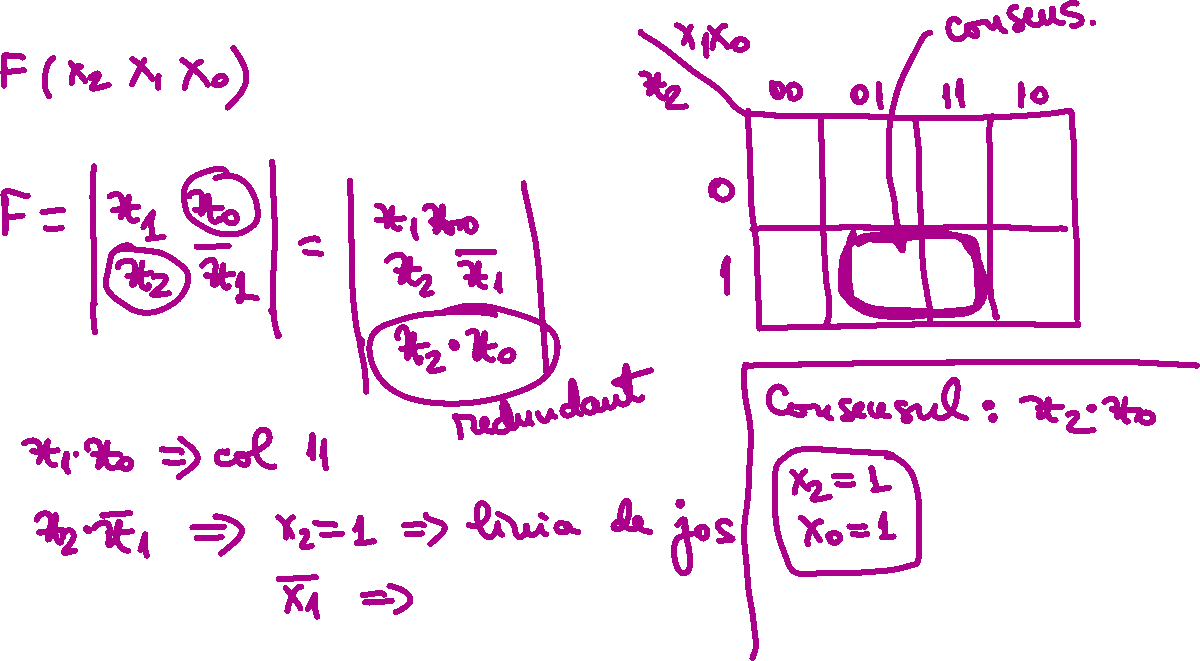 F(x₂ x₁ x₀)
F = | x₁ x₀ | = | x₁ x₀
x₂ x̅₁ | x₂ x̅₁
x₂·x₀ |
redundant
x₁·x₀ => col 11
x₂·x̅₁ => x₂=1 => linia de jos
x̅₁ =>
consens.
x₁x₀
x₂ 00 01 11 10
0
1
Consensul: x₂·x₀
x₂=1
x₀=1